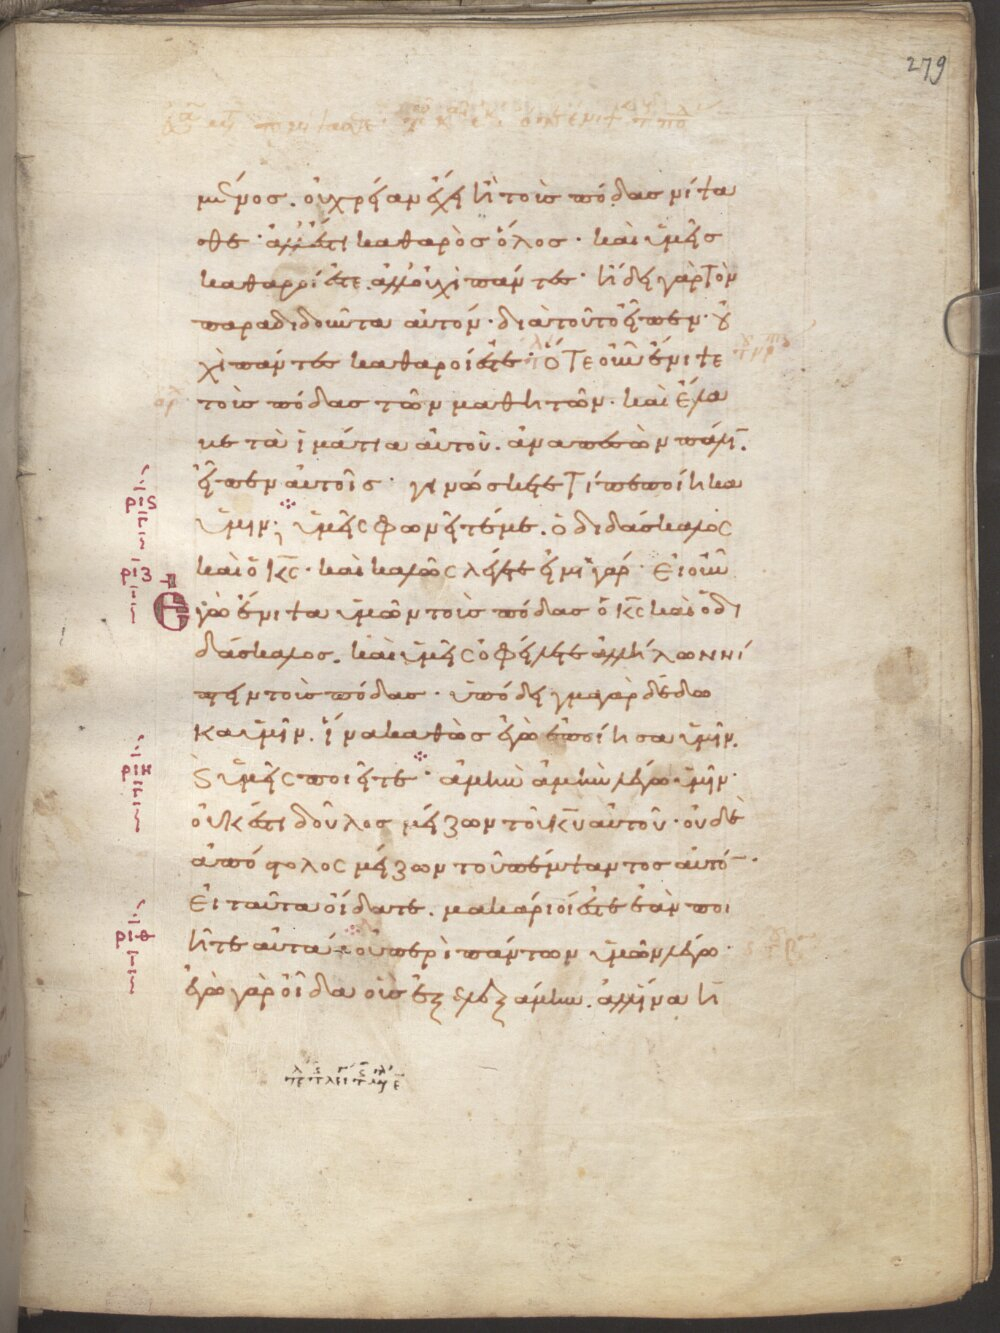 279
μένος. οὐ χρείαν ἔχει ἢ τοὺς πόδας νίψα
σθε· ἀλλ' ἔστι καθαρὸς ὅλος· καὶ ὑμεῖς
καθαροί ἐστε. ἀλλ' οὐχὶ πάντες· ἤδει γὰρ τὸν
παραδιδοῦντα αὐτόν· διὰ τοῦτο εἶπεν· οὐ
χὶ πάντες καθαροί ἐστε· ὅτε οὖν ἔνιψε
τοὺς πόδας τῶν μαθητῶν· καὶ ἔλα
βε τὰ ἱμάτια αὐτοῦ. ἀναπεσὼν πάλιν.
εἶπεν αὐτοῖς· γινώσκετε τί πεποίηκα
ὑμῖν; ὑμεῖς φωνεῖτέ με. ὁ διδάσκαλος
καὶ ὁ κ̅ς̅· καὶ καλῶς λέγετε εἰμὶ γάρ· εἰ οὖν
ἐγὼ ἔνιψα ὑμῶν τοὺς πόδας ὁ κ̅ς̅ καὶ ὁ δι
δάσκαλος. καὶ ὑμεῖς ὀφείλετε ἀλλήλων νί
πτειν τοὺς πόδας· ὑπόδειγμα γὰρ δέδω
κα ὑμῖν. ἵνα καθὼς ἐγὼ ἐποίησα ὑμῖν.
ϗ ὑμεῖς ποιεῖτε· ἀμὴν ἀμὴν λέγω ὑμῖν·
οὐκ ἔστι δοῦλος μείζων τοῦ κ̅υ̅ αὐτοῦ· οὐδὲ
ἀπόστολος μείζων τοῦ πέμψαντος αὐτόν·
εἰ ταῦτα οἴδατε. μακάριοί ἐστε ἐὰν ποι
ῆτε αὐτά· οὐ περὶ πάντων ὑμῶν λέγω·
ἐγὼ γὰρ οἶδα οὓς ἐξελεξάμην. ἀλλ' ἵνα ἡ